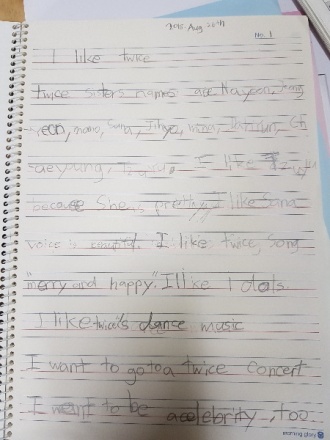 2018. Aug 20th
No. 1
I like twice
twice sisters names are Nayeon, Jeong
yeon, momo, Sana, Jihyo, mina, Dahyun, Ch
aeyoung, Tzuyu. I like
because She is pretty. I like Sana
voice is beautiful. I like twice, song
"merry and happy". I like Idols.
I like twice's dance music
I want to go to a twice concert
I want to be a celebrity, too